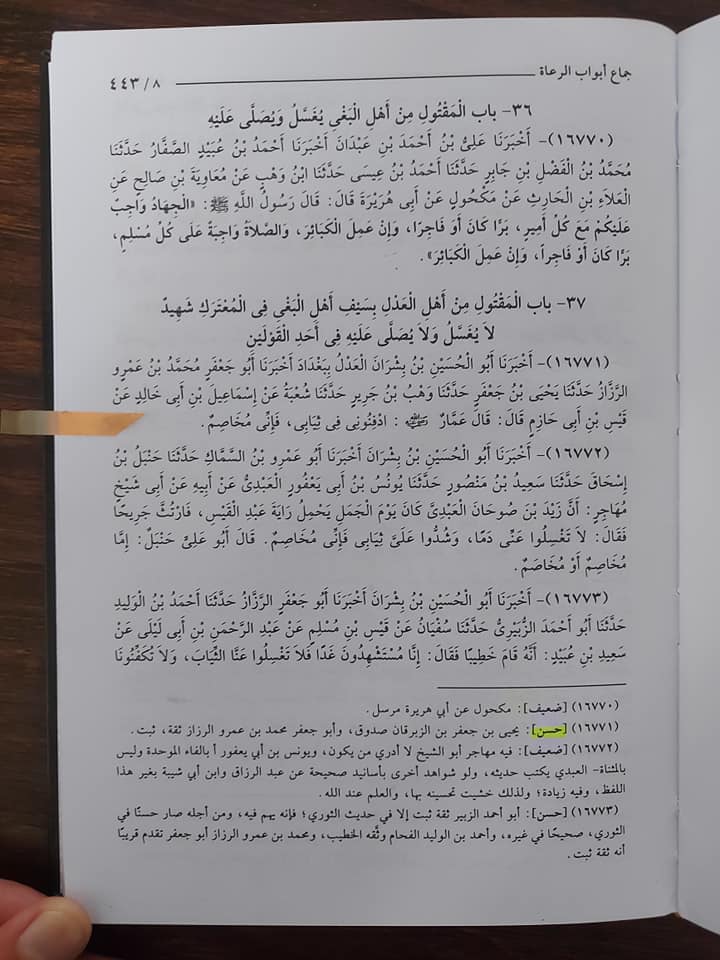 جماع أبواب الرعاة
٨/ ٤٤٣
٣٦- باب الْمَقْتُولِ مِنْ أَهْلِ الْبَغْىِ يُغَسَّلُ وَيُصَلَّى عَلَيْهِ
(١٦٧٧٠)- أَخْبَرَنَا عَلِىُّ بْنُ أَحْمَدَ بْنِ عَبْدَانَ أَخْبَرَنَا أَحْمَدُ بْنُ عُبَيْدٍ الصَّفَّارُ حَدَّثَنَا
مُحَمَّدُ بْنُ الْفَضْلِ بْنِ جَابِرٍ حَدَّثَنَا أَحْمَدُ بْنُ عِيسَى حَدَّثَنَا ابْنُ وَهْبٍ عَنْ مُعَاوِيَةَ بْنِ صَالِحٍ عَنِ
الْعَلاَءِ بْنِ الْحَارِثِ عَنْ مَكْحُولٍ عَنْ أَبِى هُرَيْرَةَ قَالَ: قَالَ رَسُولُ اللَّهِ ﷺ: «الْجِهَادُ وَاجِبٌ
عَلَيْكُمْ مَعَ كُلِّ أَمِيرٍ، بَرًّا كَانَ أَوْ فَاجِرًا، وَإِنْ عَمِلَ الْكَبَائِرَ، وَالصَّلاَةُ وَاجِبَةٌ عَلَى كُلِّ مُسْلِمٍ،
بَرًّا كَانَ أَوْ فَاجِراً، وَإِنْ عَمِلَ الْكَبَائِرَ».
٣٧- باب الْمَقْتُولِ مِنْ أَهْلِ الْعَدْلِ بِسَيْفِ أَهْلِ الْبَغْىِ فِى الْمُعْتَرَكِ شَهِيدٌ
لاَ يُغَسَّلُ وَلاَ يُصَلَّى عَلَيْهِ فِى أَحَدِ الْقَوْلَيْنِ
(١٦٧٧١)- أَخْبَرَنَا أَبُو الْحُسَيْنِ بْنُ بِشْرَانَ الْعَدْلُ بِبَغْدَادَ أَخْبَرَنَا أَبُو جَعْفَرٍ مُحَمَّدُ بْنُ عَمْرِو
الرَّزَّازُ حَدَّثَنَا يَحْيَى بْنُ جَعْفَرٍ حَدَّثَنَا وَهْبُ بْنُ جَرِيرٍ حَدَّثَنَا شُعْبَةُ عَنْ إِسْمَاعِيلَ بْنِ أَبِى خَالِدٍ عَنْ
قَيْسِ بْنِ أَبِى حَازِمٍ قَالَ: قَالَ عَمَّارٌ رضي الله عنه : ادْفِنُونِى فِى ثِيَابِى، فَإِنِّى مُخَاصِمٌ.
(١٦٧٧٢)- أَخْبَرَنَا أَبُو الْحُسَيْنِ بْنُ بِشْرَانَ أَخْبَرَنَا أَبُو عَمْرِو بْنُ السَّمَّاكِ حَدَّثَنَا حَنْبَلُ بْنُ
إِسْحَاقَ حَدَّثَنَا سَعِيدُ بْنُ مَنْصُورٍ حَدَّثَنَا يُونُسُ بْنُ أَبِى يَعْفُورٍ الْعَبْدِىُّ عَنْ أَبِيهِ عَنْ أَبِى شَيْخٍ
مُهَاجِرٍ: أَنَّ زَيْدَ بْنَ صُوحَانَ الْعَبْدِىَّ كَانَ يَوْمَ الْجَمَلِ يَحْمِلُ رَايَةَ عَبْدِ الْقَيْسِ، فَارْتُثَّ جَرِيحًا
فَقَالَ: لاَ تَغْسِلُوا عَنِّى دَمًا، وَشُدُّوا عَلَىَّ ثِيَابِى فَإِنِّى مُخَاصِمٌ. قَالَ أَبُو عَلِىٍّ حَنْبَلٌ: إِمَّا
مُخَاصِمٌ أَوْ مُخَاصَمٌ.
(١٦٧٧٣)- أَخْبَرَنَا أَبُو الْحُسَيْنِ بْنُ بِشْرَانَ أَخْبَرَنَا أَبُو جَعْفَرٍ الرَّزَّازُ حَدَّثَنَا أَحْمَدُ بْنُ الْوَلِيدِ
حَدَّثَنَا أَبُو أَحْمَدَ الزُّبَيْرِىُّ حَدَّثَنَا سُفْيَانُ عَنْ قَيْسِ بْنِ مُسْلِمٍ عَنْ عَبْدِ الرَّحْمَنِ بْنِ أَبِى لَيْلَى عَنْ
سَعِيدِ بْنِ عُبَيْدٍ: أَنَّهُ قَامَ خَطِيبًا فَقَالَ: إِنَّا مُسْتَشْهِدُونَ غَدًا فَلاَ تَغْسِلُوا عَنَّا الثِّيَابَ، وَلاَ تُكَفِّنُونَا
(١٦٧٧٠) [ضعيف]: مكحول عن أبي هريرة مرسل.
(١٦٧٧١) [حسن]: يحيى بن جعفر بن الزبرقان صدوق، وأبو جعفر محمد بن عمرو الرزاز ثقة، ثبت.
(١٦٧٧٢) [ضعيف]: فيه مهاجر أبو الشيخ لا أدري من يكون، ويونس بن أبي يعفور أ بالفاء الموحدة وليس
بالمثناة- العبدي يكتب حديثه، ولو شواهد أخرى بأسانيد صحيحة عن عبد الرزاق وابن أبي شيبة بغير هذا
اللفظ، وفيه زيادة؛ ولذلك خشيت تحسينه بها، والعلم عند الله.
(١٦٧٧٣) [حسن]: أبو أحمد الزبير ثقة ثبت إلا في حديث الثوري؛ فإنه يهم فيه، ومن أجله صار حسنًا في
الثوري، صحيحًا في غيره، وأحمد بن الوليد الفحام وثَّقه الخطيب، ومحمد بن عمرو الرزاز أبو جعفر تقدم قريبًا
أنه ثقة ثبت.